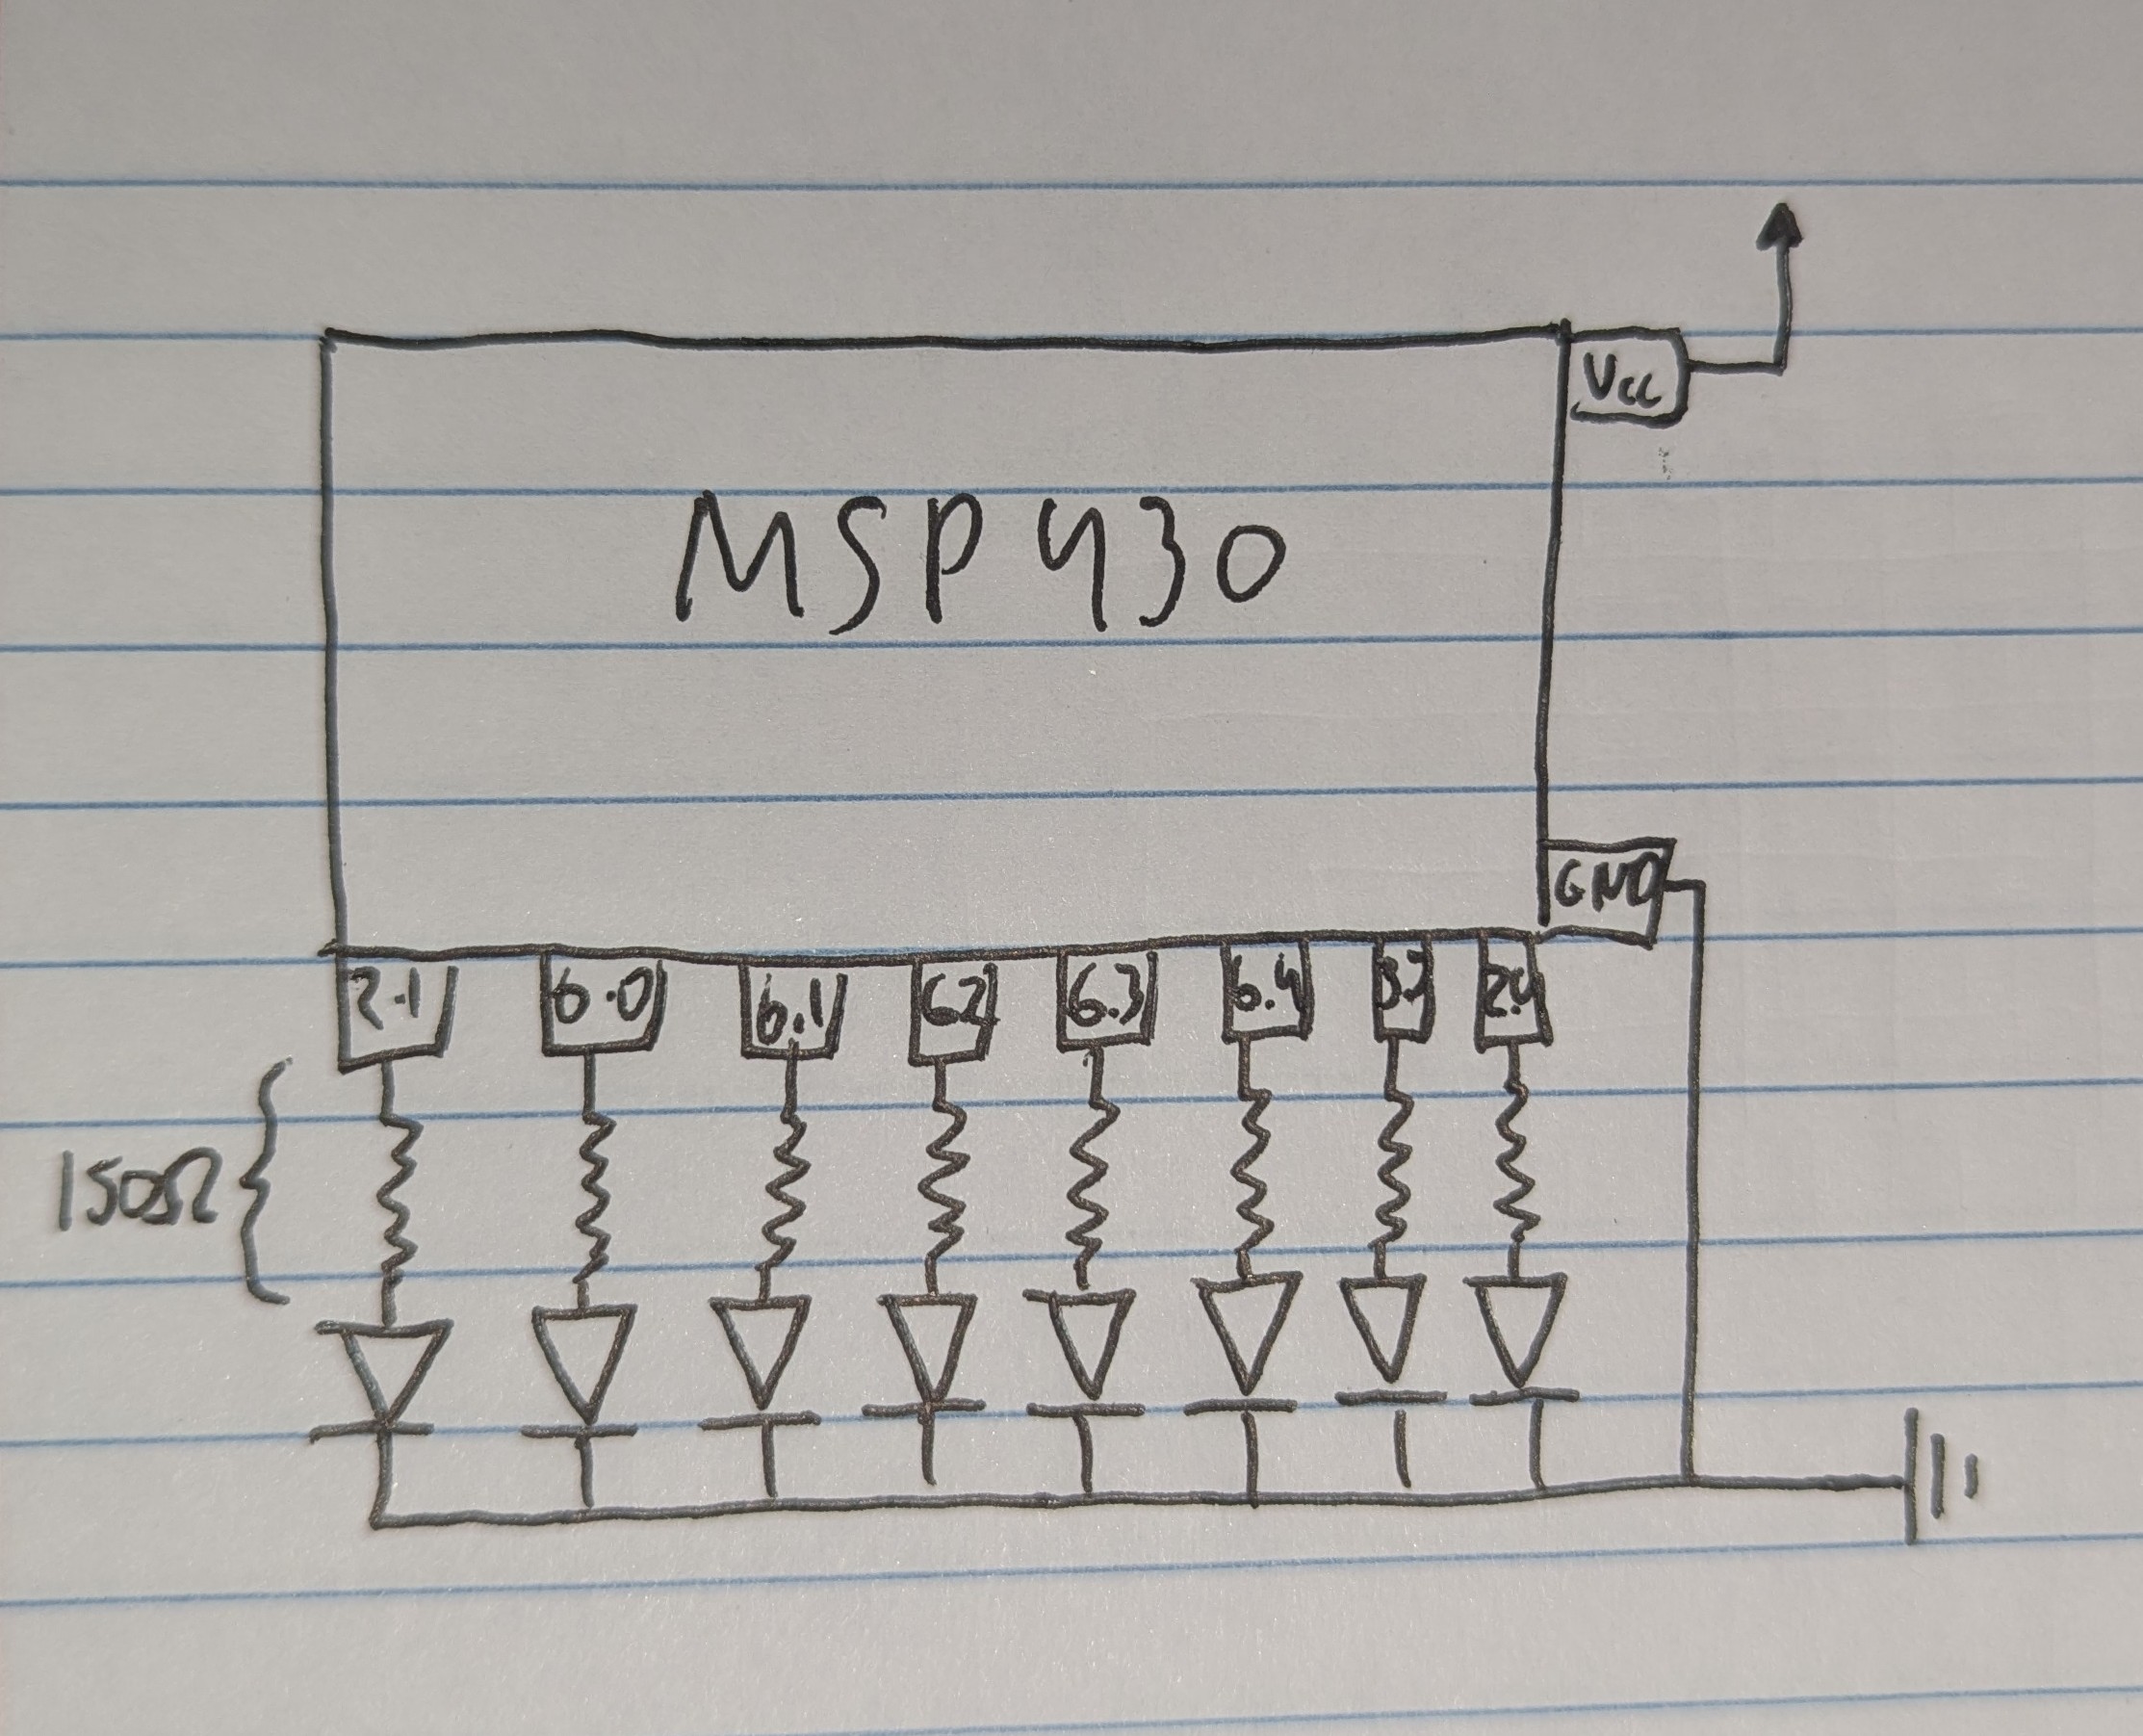 Vcc
MSP430
GND
2.1 6.0 6.1 6.2 6.3 6.4 2.4
150Ω